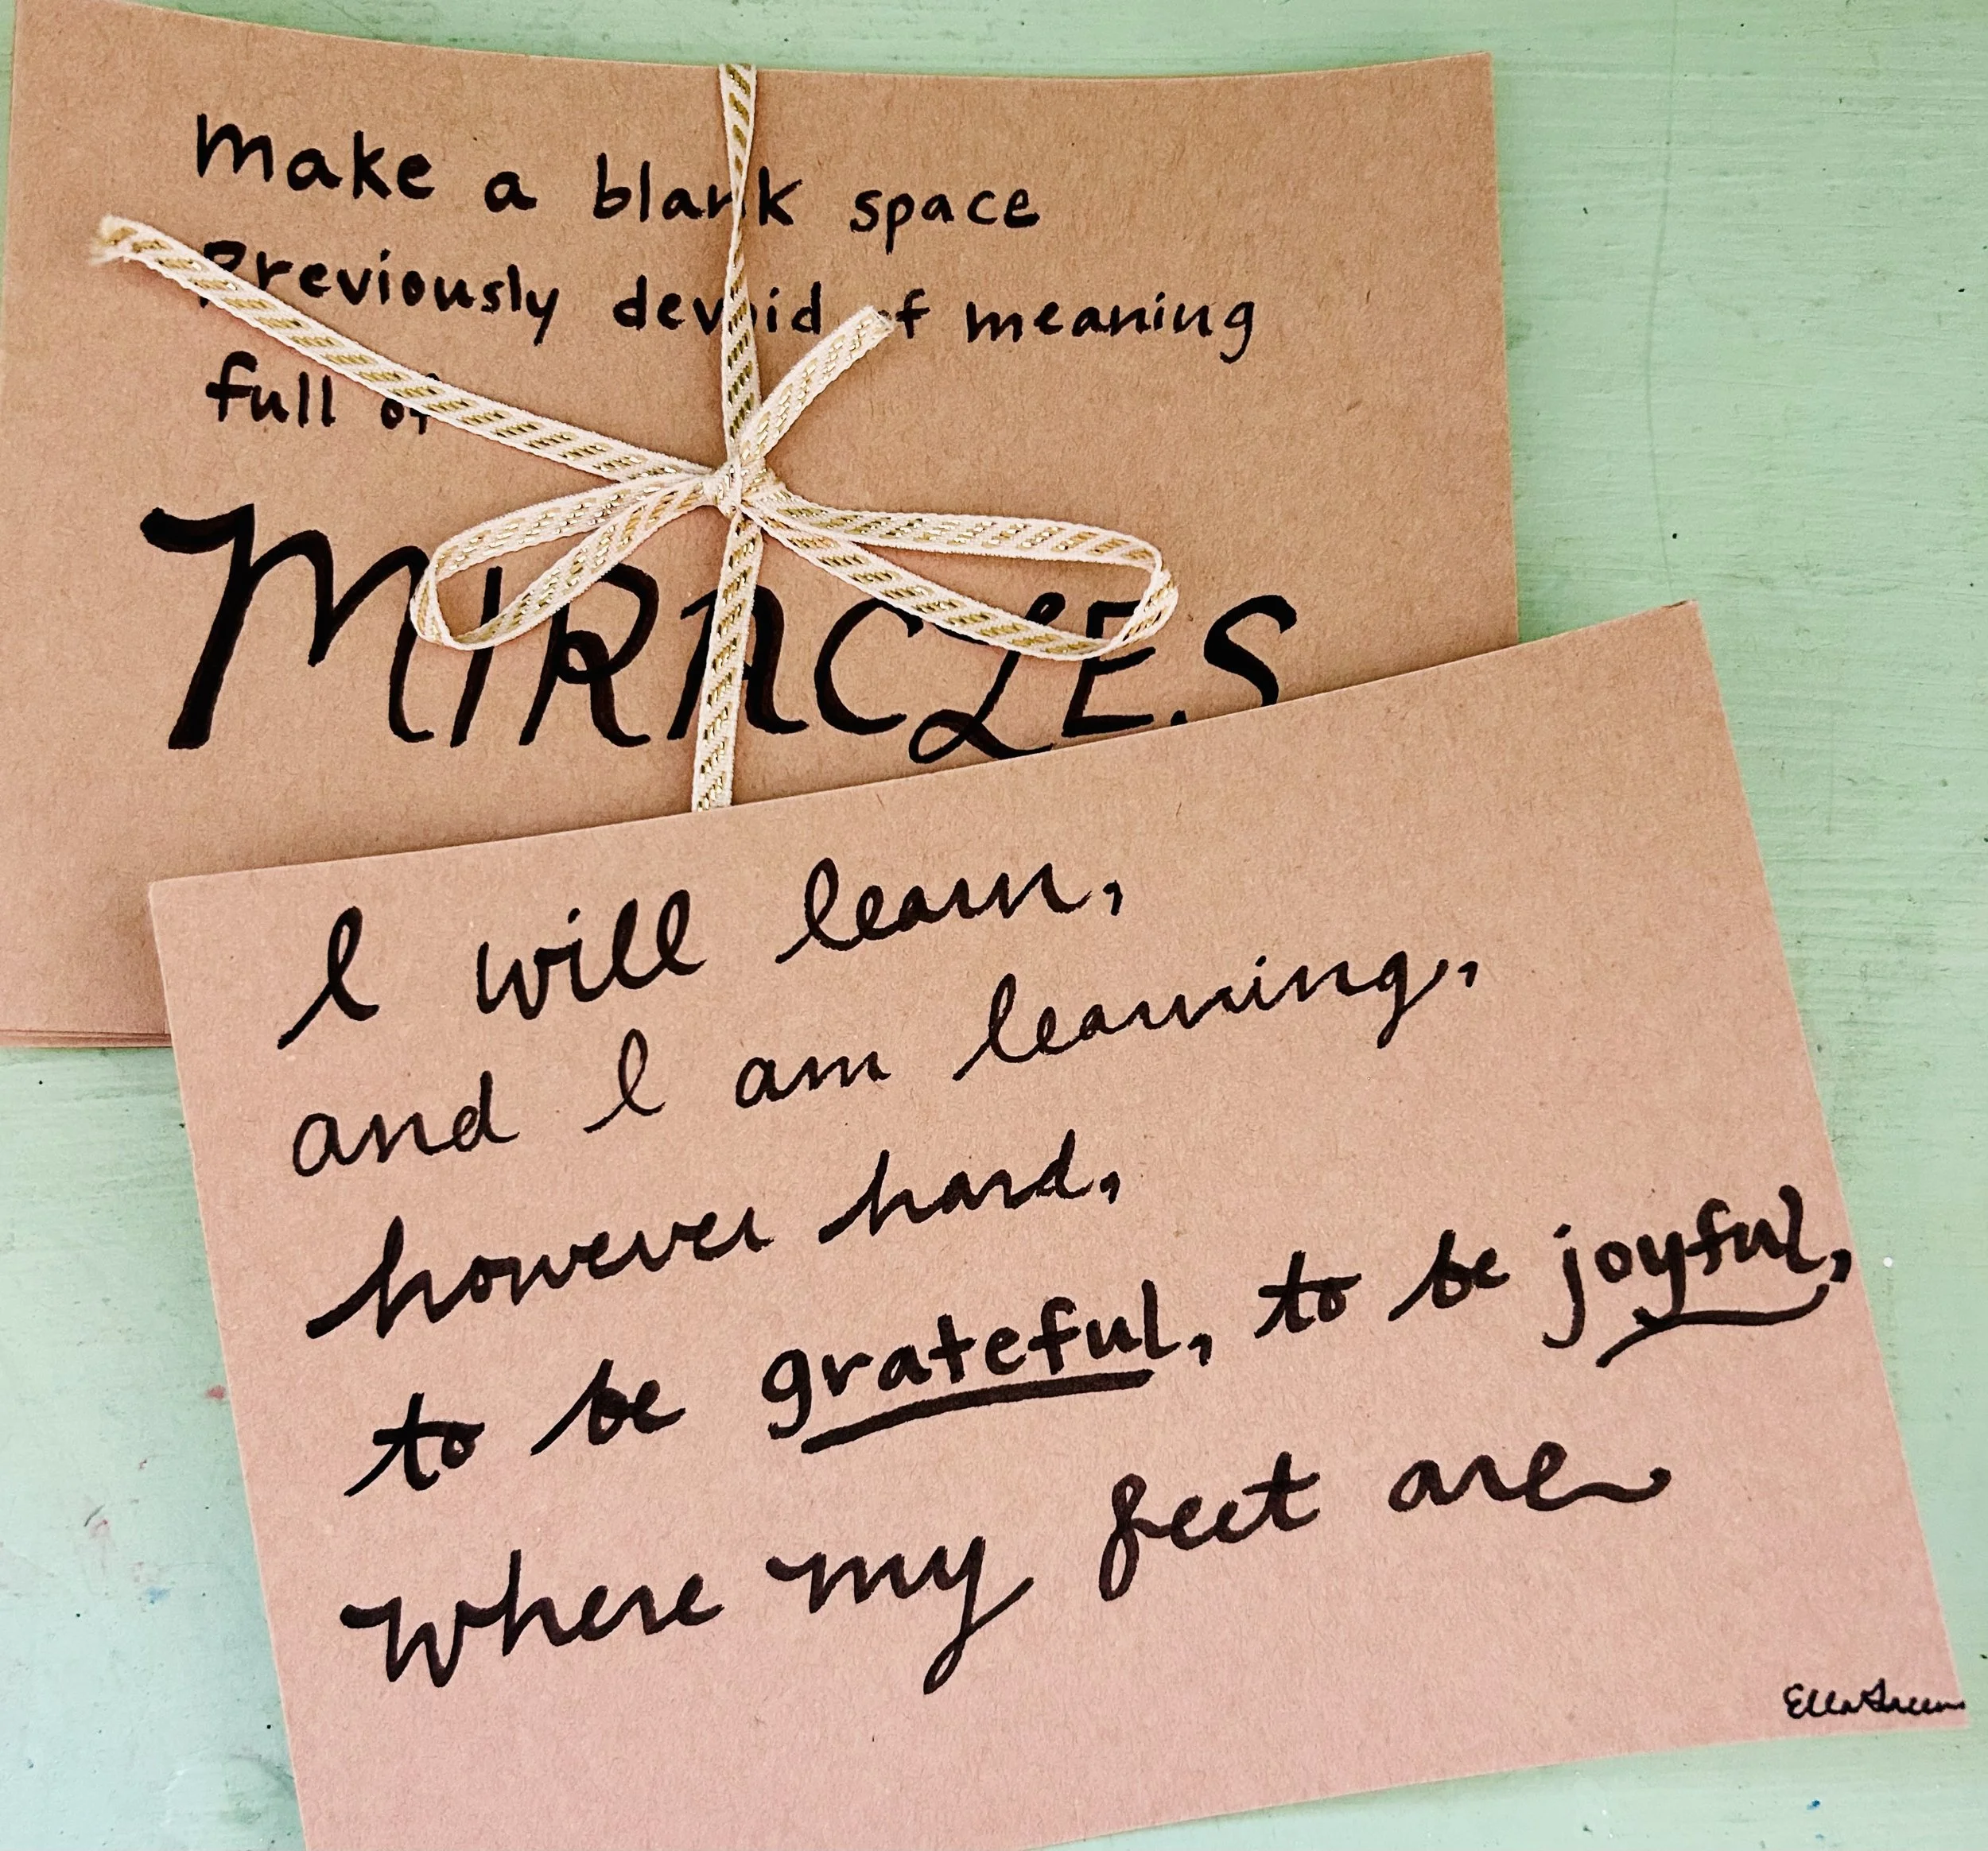 make a blank space
Previously devoid of meaning
full of
MIRACLES
I will learn,
and I am learning,
however hard,
to be grateful, to be joyful,
where my feet are
Ella Green